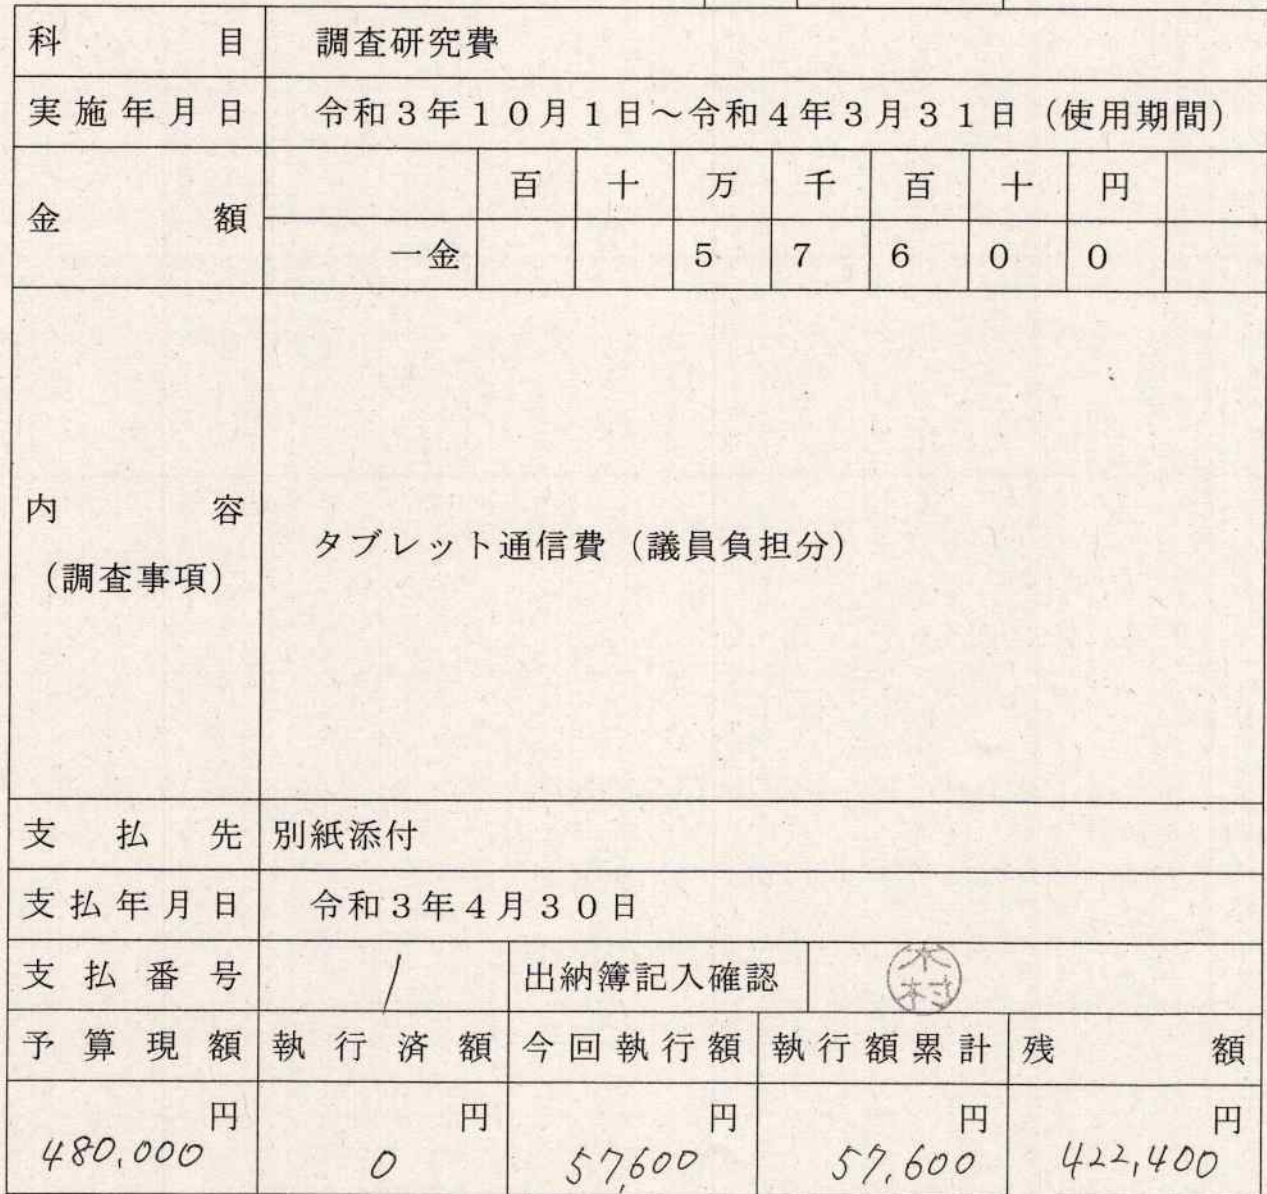 科目 調査研究費
実施年月日 令和3年10月1日～令和4年3月31日（使用期間）
金額 百 十 万 千 百 十 円
一金 5 7 6 0 0
内容
（調査事項）
タブレット通信費（議員負担分）
支払先 別紙添付
支払年月日 令和3年4月30日
支払番号 1 出納簿記入確認 木村
予算現額 執行済額 今回執行額 執行額累計 残額
円 円 円 円 円
480,000 0 57,600 57,600 422,400